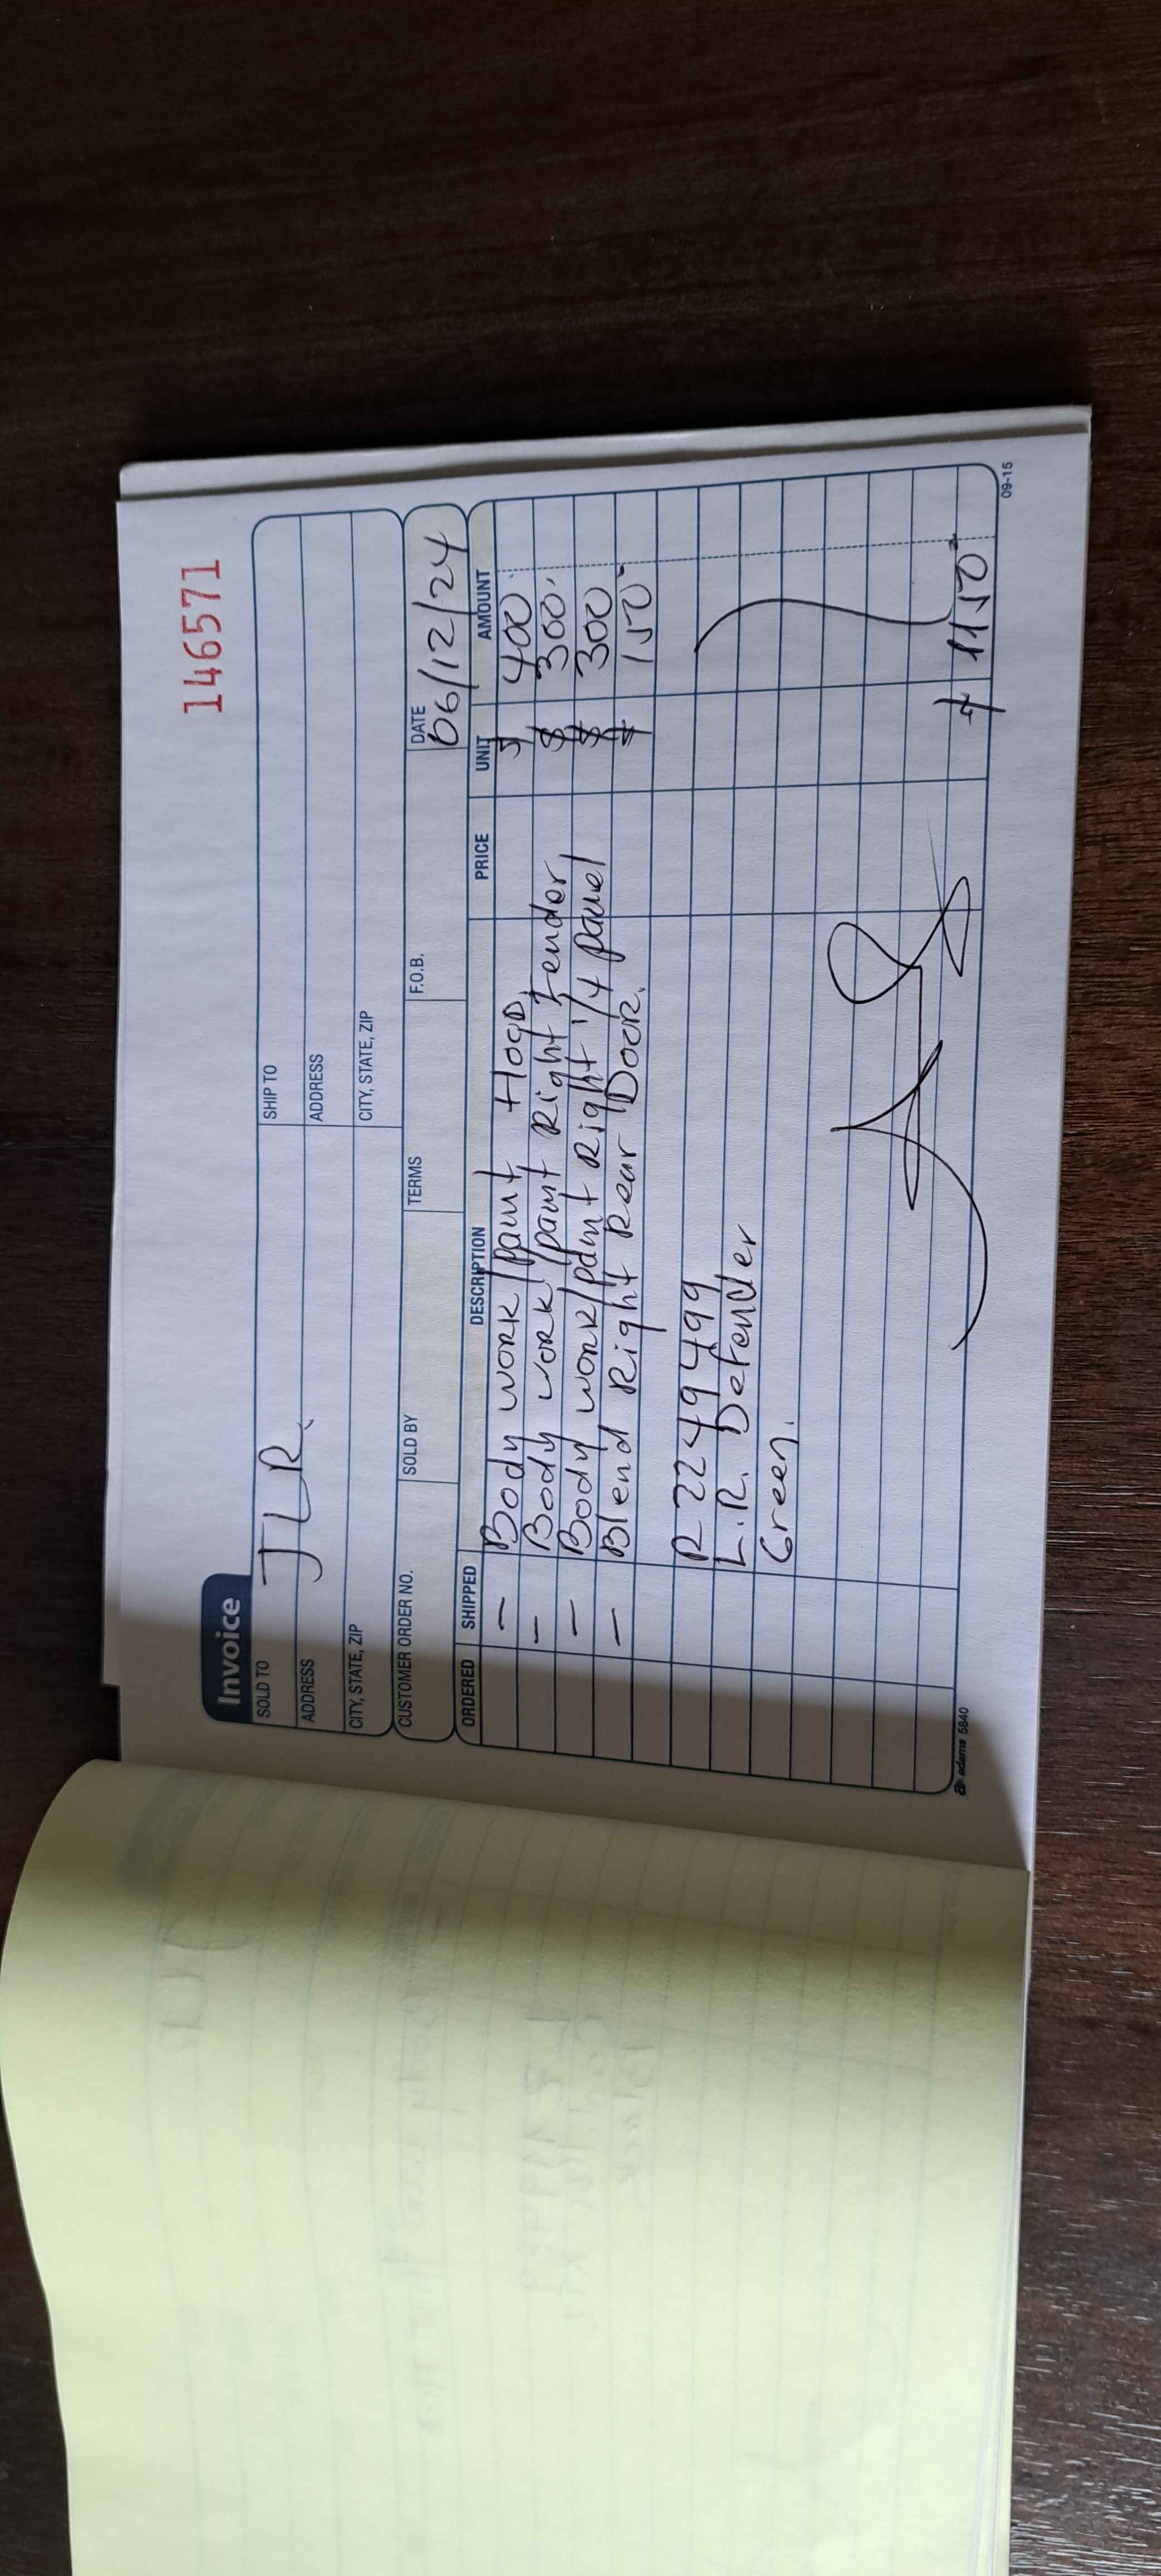 146571
Invoice
SOLD TO JLR. SHIP TO
ADDRESS ADDRESS
CITY, STATE, ZIP CITY, STATE, ZIP
CUSTOMER ORDER NO. SOLD BY TERMS F.O.B. DATE 06/12/24
ORDERED SHIPPED DESCRIPTION PRICE UNIT AMOUNT
- Body work/paint Hood $ 400
- Body work/paint Right Fender $ 300
- Body work/paint Right 1/4 panel $ 300
- Blend Right Rear Door. $ 150
R 2249499
L.R. Defender
Green.
$ 1150
adams 5840 09-15